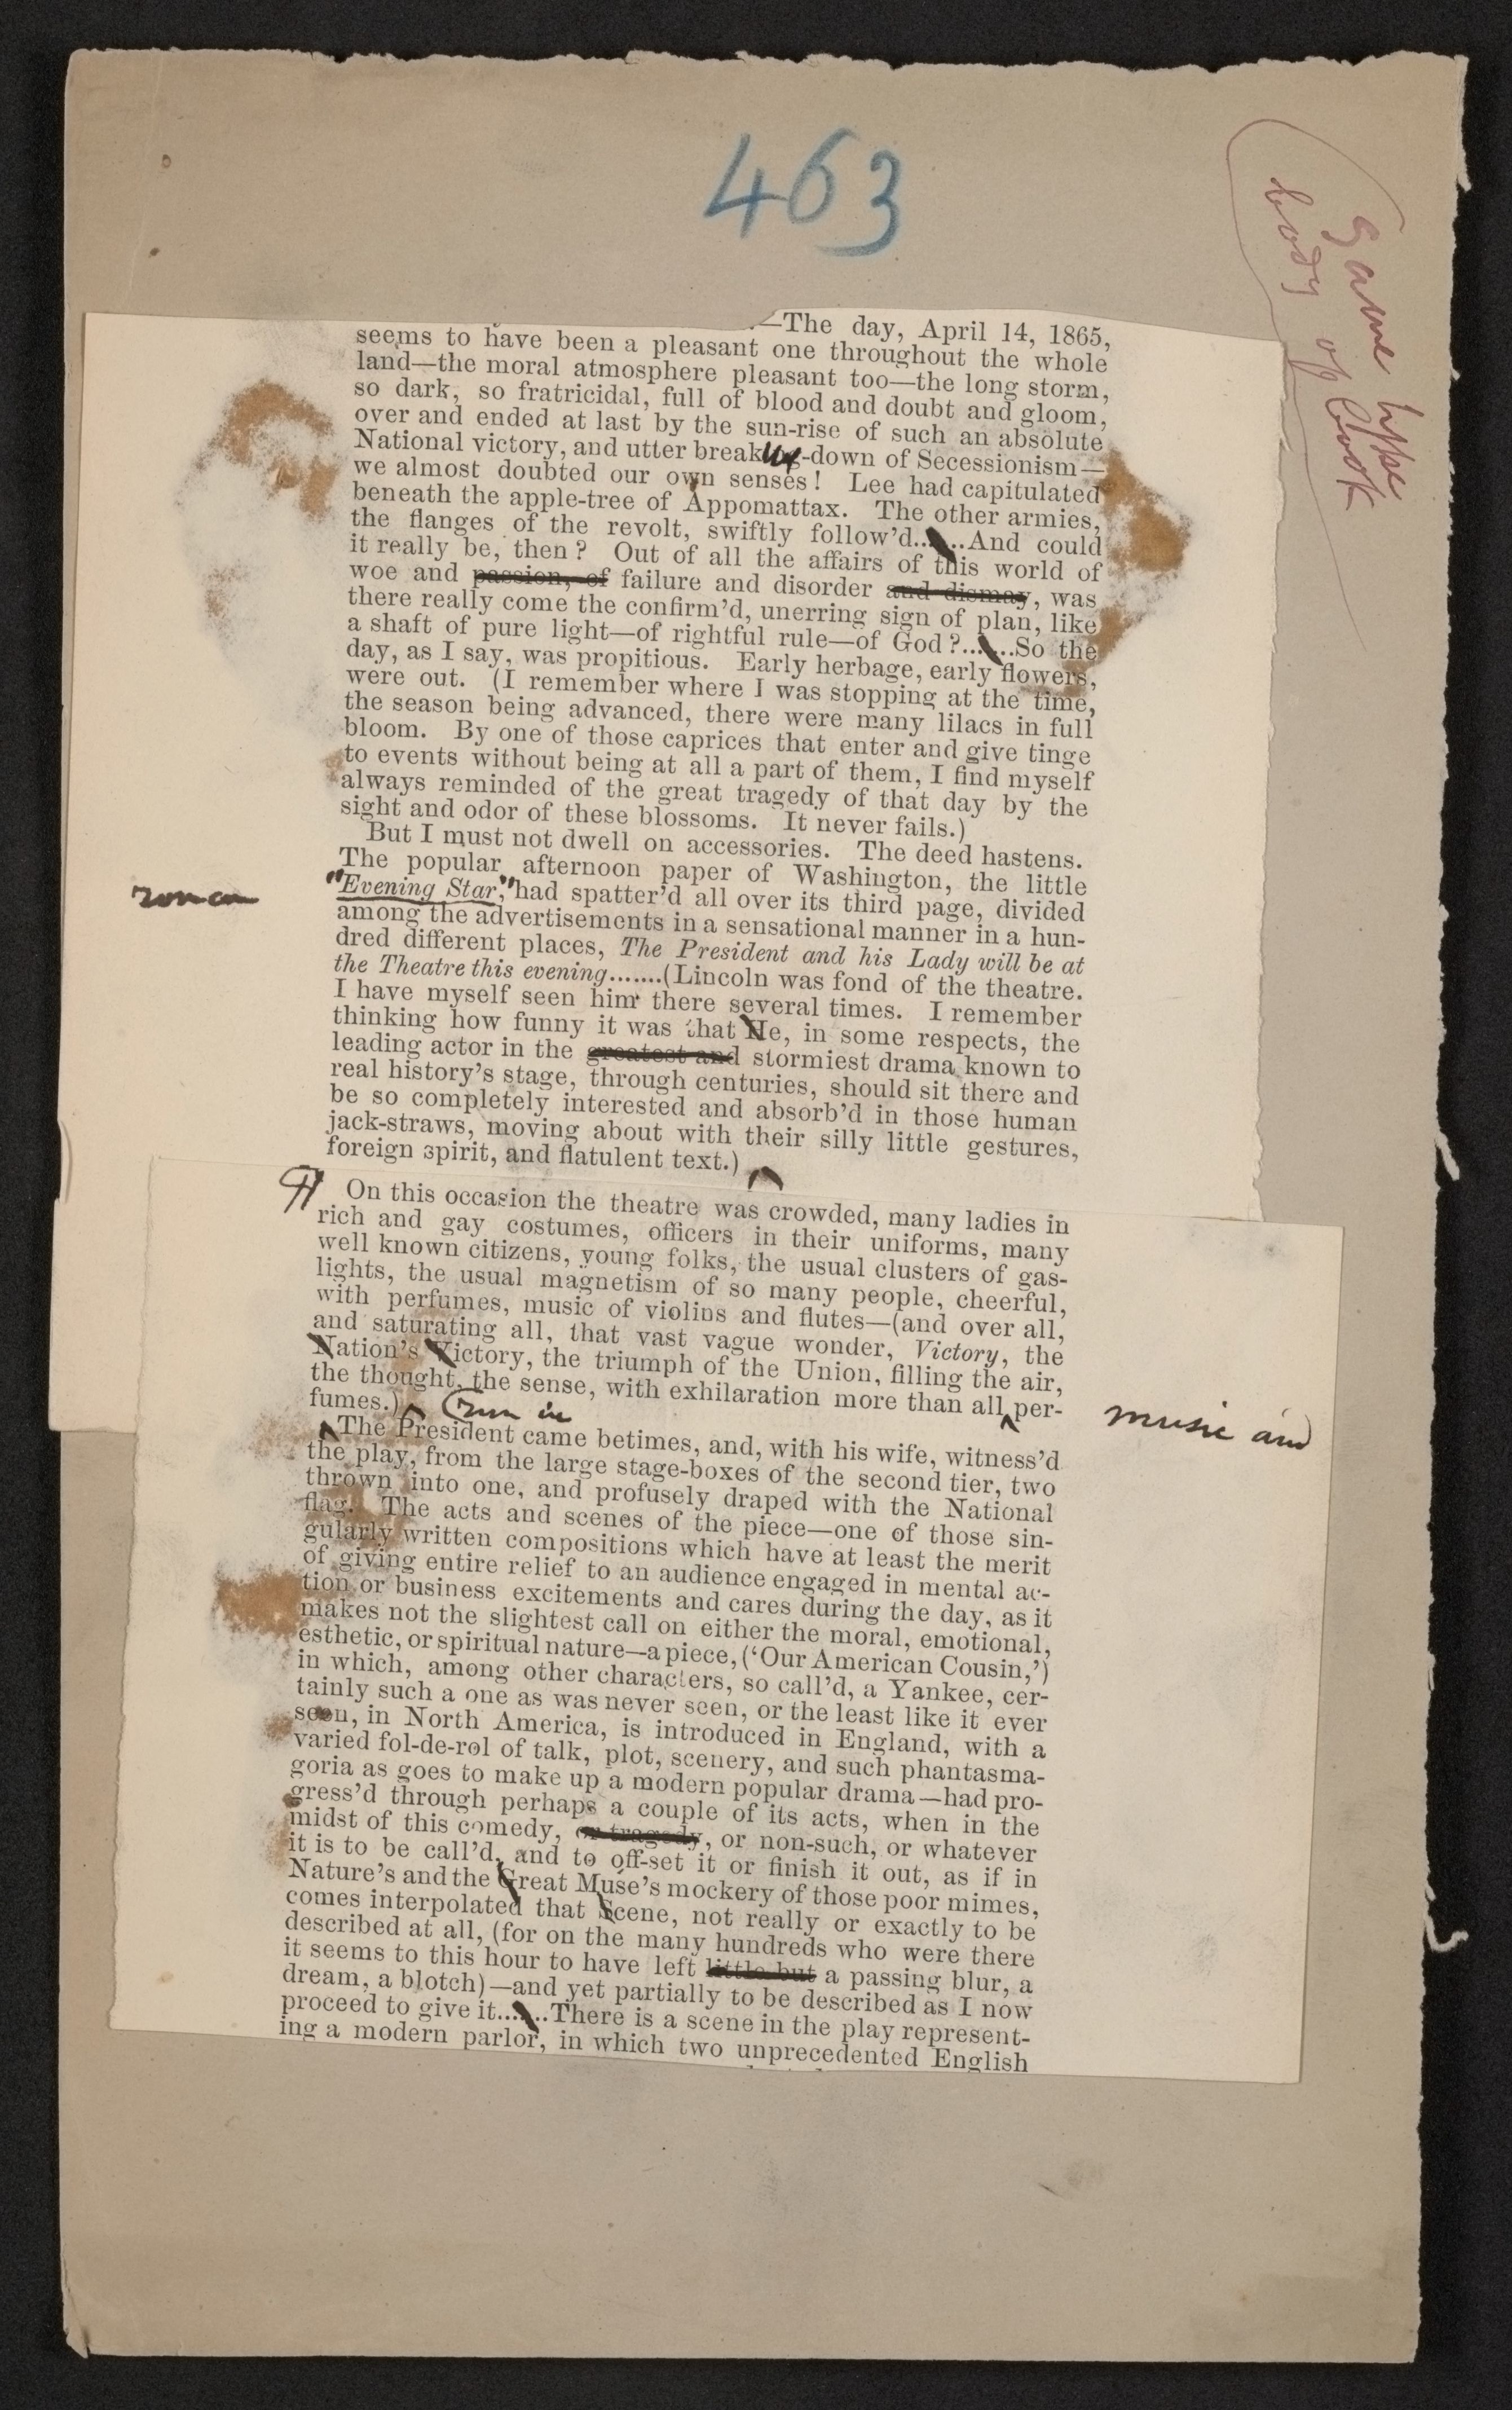 463
same type
body of book
.—The day, April 14, 1865,
seems to have been a pleasant one throughout the whole
land—the moral atmosphere pleasant too—the long storm,
so dark, so fratricidal, full of blood and doubt and gloom,
over and ended at last by the sun-rise of such an absolute
National victory, and utter breaking-down of Secessionism—
we almost doubted our own senses! Lee had capitulated
beneath the apple-tree of Appomattax. The other armies,
the flanges of the revolt, swiftly follow'd......And could
it really be, then? Out of all the affairs of this world of
woe and passion, of failure and disorder and dismay, was
there really come the confirm'd, unerring sign of plan, like
a shaft of pure light—of rightful rule—of God?......So the
day, as I say, was propitious. Early herbage, early flowers,
were out. (I remember where I was stopping at the time,
the season being advanced, there were many lilacs in full
bloom. By one of those caprices that enter and give tinge
to events without being at all a part of them, I find myself
always reminded of the great tragedy of that day by the
sight and odor of these blossoms. It never fails.)
But I must not dwell on accessories. The deed hastens.
The popular afternoon paper of Washington, the little
roman
"Evening Star," had spatter'd all over its third page, divided
among the advertisements in a sensational manner in a hun-
dred different places, The President and his Lady will be at
the Theatre this evening.......(Lincoln was fond of the theatre.
I have myself seen him there several times. I remember
thinking how funny it was that He, in some respects, the
leading actor in the greatest and stormiest drama known to
real history's stage, through centuries, should sit there and
be so completely interested and absorb'd in those human
jack-straws, moving about with their silly little gestures,
foreign spirit, and flatulent text.)
¶ On this occasion the theatre was crowded, many ladies in
rich and gay costumes, officers in their uniforms, many
well known citizens, young folks, the usual clusters of gas-
lights, the usual magnetism of so many people, cheerful,
with perfumes, music of violins and flutes—(and over all,
and saturating all, that vast vague wonder, Victory, the
Nation's Victory, the triumph of the Union, filling the air,
the thought, the sense, with exhilaration more than all per-
music and
fumes.) (run in
The President came betimes, and, with his wife, witness'd
the play, from the large stage-boxes of the second tier, two
thrown into one, and profusely draped with the National
flag. The acts and scenes of the piece—one of those sin-
gularly written compositions which have at least the merit
of giving entire relief to an audience engaged in mental ac-
tion or business excitements and cares during the day, as it
makes not the slightest call on either the moral, emotional,
esthetic, or spiritual nature—a piece, ('Our American Cousin,')
in which, among other characters, so call'd, a Yankee, cer-
tainly such a one as was never seen, or the least like it ever
seen, in North America, is introduced in England, with a
varied fol-de-rol of talk, plot, scenery, and such phantasma-
goria as goes to make up a modern popular drama—had pro-
gress'd through perhaps a couple of its acts, when in the
midst of this comedy, or tragedy, or non-such, or whatever
it is to be call'd, and to off-set it or finish it out, as if in
Nature's and the Great Muse's mockery of those poor mimes,
comes interpolated that Scene, not really or exactly to be
described at all, (for on the many hundreds who were there
it seems to this hour to have left little but a passing blur, a
dream, a blotch)—and yet partially to be described as I now
proceed to give it......There is a scene in the play represent-
ing a modern parlor, in which two unprecedented English